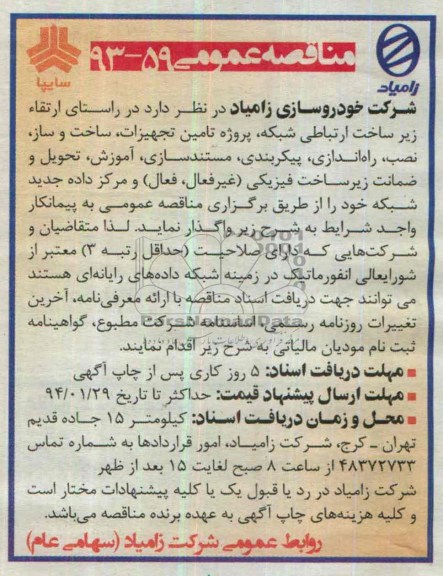 مناقصه عمومی ۵۹-۹۳
زامیاد
سایپا
شرکت خودروسازی زامیاد در نظر دارد در راستای ارتقاء
زیر ساخت ارتباطی شبکه، پروژه تامین تجهیزات، ساخت و ساز،
نصب، راه‌اندازی، پیکربندی، مستندسازی، آموزش، تحویل و
ضمانت زیرساخت فیزیکی (غیرفعال، فعال) و مرکز داده جدید
شبکه خود را از طریق برگزاری مناقصه عمومی به پیمانکار
واجد شرایط به شرح زیر واگذار نماید. لذا متقاضیان و
شرکت‌هایی که دارای صلاحیت (حداقل رتبه ۳) معتبر از
شورایعالی انفورماتیک در زمینه شبکه داده‌های رایانه‌ای هستند
می توانند جهت دریافت اسناد مناقصه با ارائه معرفی‌نامه، آخرین
تغییرات روزنامه رسمی، اساسنامه شرکت مطبوع، گواهینامه
ثبت نام مودیان مالیاتی به شرح زیر اقدام نمایند.
■ مهلت دریافت اسناد: ۵ روز کاری پس از چاپ آگهی
■ مهلت ارسال پیشنهاد قیمت: حداکثر تا تاریخ ۹۴/۰۱/۲۹
■ محل و زمان دریافت اسناد: کیلومتر ۱۵ جاده قدیم
تهران ـ کرج، شرکت زامیاد، امور قراردادها به شماره تماس
۴۸۳۷۲۷۳۳ از ساعت ۸ صبح لغایت ۱۵ بعد از ظهر
شرکت زامیاد در رد یا قبول یک یا کلیه پیشنهادات مختار است
و کلیه هزینه‌های چاپ آگهی به عهده برنده مناقصه می‌باشد.
روابط عمومی شرکت زامیاد (سهامی عام)